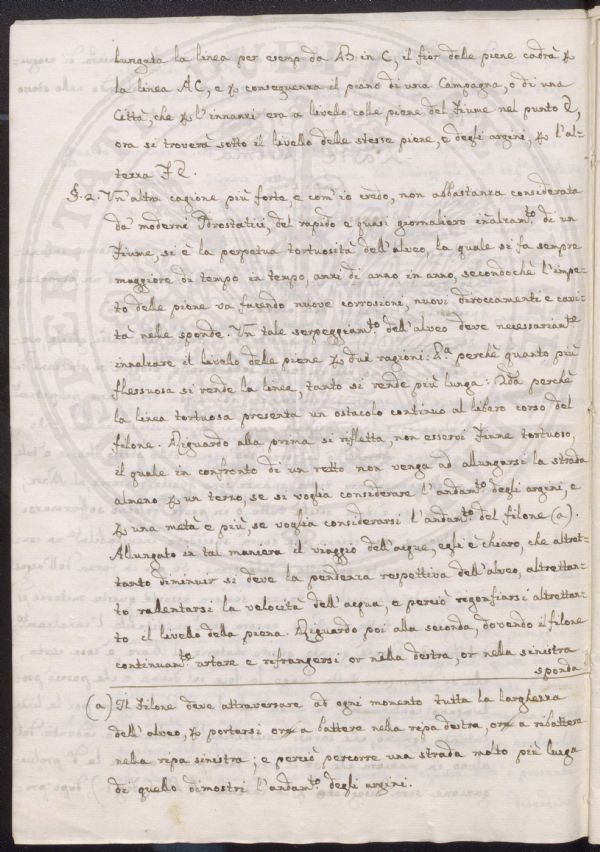 lungata la linea per esemp. da B in C, il fior delle piene cadrà p
la linea AC, e p conseguenza il piano di una Campagna, o di una
Città, che p l'innanzi era a livello colle piene del Fiume nel punto Q,
ora si troverà sotto il livello delle stesse piene, e degli argini, p l'al-
tezza FQ.
§. 2. Un'altra cagione più forte, e com'io credo, non abbastanza considerata
da' moderni Idrostatici, del rapido e quasi giornaliero inalzam.to di un
Fiume, si è la perpetua tortuosità dell'alveo, la quale si fa sempre
maggiore di tempo in tempo, anzi di anno in anno, secondochè l'impe-
to delle piene va facendo nuove corrosioni, nuovi diroccamenti e cavi-
tà nelle sponde. Un tale serpeggiam.to dell'alveo deve necessariam.te
innalzare il livello delle piene p due ragioni: P.a perchè quanto più
flessuosa si rende la linea, tanto si rende più lunga: 2da perchè
la linea tortuosa presenta un ostacolo continuo al libero corso del
filone. Riguardo alla prima si rifletta, non esservi Fiume tortuoso,
il quale in confronto di un retto non venga ad allungarsi la strada
almeno p un terzo, se si voglia considerare l'andam.to degli argini, e
p una metà e più, se voglia considerarsi l'andam.to del filone (a).
Allungato in tal maniera il viaggio dell'acque, egli è chiaro, che altret-
tanto diminuir si deve la pendenza respettiva dell'alveo, altrettan-
to rallentarsi la velocità dell'acqua, e perciò rigonfiarsi altrettan-
to il livello della piena. Riguardo poi alla seconda, dovendo il filone
continuam.te urtare e rifrangersi or nella destra, or nella sinistra
sponda
(a) Il Filone deve attraversare ad ogni momento tutta la larghezza
dell'alveo, p portarsi or a battere nella ripa destra, or a ribattere
nella ripa sinistra; e perciò percorre una strada molto più lunga
di quello dimostri l'andam.to degli argini.